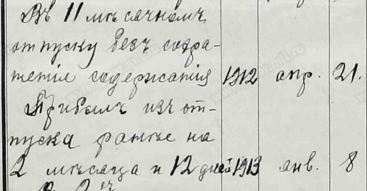 Въ 11 мѣсячномъ
отпуску безъ сокра-
щенiя содержанiя 1912 апр. 21.
Прибылъ изъ от-
пуска ранѣе на
2 мѣсяца и 12 дней 1913 янв. 8